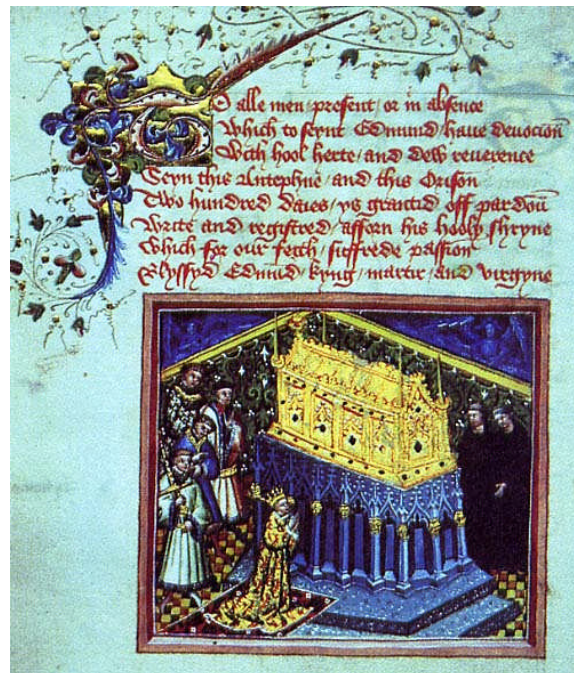 To alle men present / or in absence
Which to seynt Edmund / haue deuocion
With hool herte / and dew reuerence
Seyn this Antephne / and this Orison
Two hundred daies / ys grantid off pardoun
Write and registred / afforn his hooly shryne
Which for our feith / suffrede passion
Blyssyd Edmund / kyng / martir / and virgyne